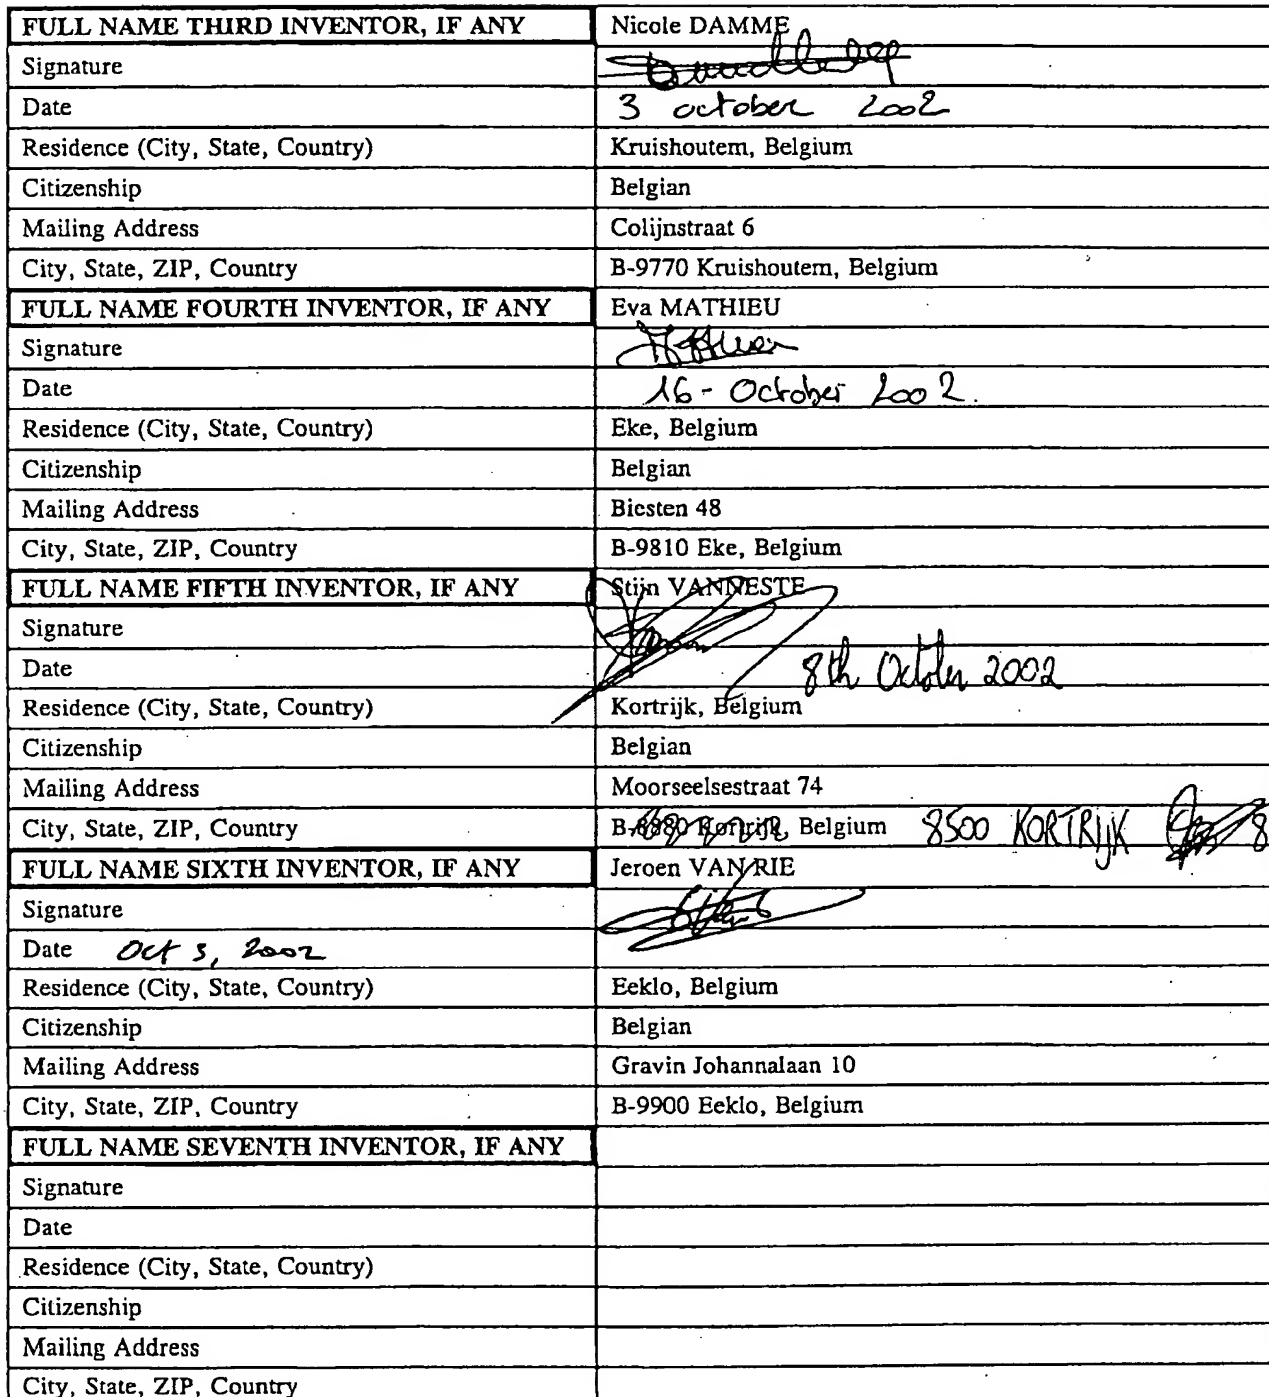 FULL NAME THIRD INVENTOR, IF ANY Nicole DAMME
Signature
Date 3 october 2002
Residence (City, State, Country) Kruishoutem, Belgium
Citizenship Belgian
Mailing Address Colijnstraat 6
City, State, ZIP, Country B-9770 Kruishoutem, Belgium
FULL NAME FOURTH INVENTOR, IF ANY Eva MATHIEU
Signature
Date 16 - October 2002.
Residence (City, State, Country) Eke, Belgium
Citizenship Belgian
Mailing Address Biesten 48
City, State, ZIP, Country B-9810 Eke, Belgium
FULL NAME FIFTH INVENTOR, IF ANY Stijn VANNESTE
Signature
Date 8th October 2002
Residence (City, State, Country) Kortrijk, Belgium
Citizenship Belgian
Mailing Address Moorseelsestraat 74
City, State, ZIP, Country Kortrijk, Belgium 8500 KORTRIJK 8
FULL NAME SIXTH INVENTOR, IF ANY Jeroen VAN RIE
Signature
Date Oct 3, 2002
Residence (City, State, Country) Eeklo, Belgium
Citizenship Belgian
Mailing Address Gravin Johannalaan 10
City, State, ZIP, Country B-9900 Eeklo, Belgium
FULL NAME SEVENTH INVENTOR, IF ANY
Signature
Date
Residence (City, State, Country)
Citizenship
Mailing Address
City, State, ZIP, Country